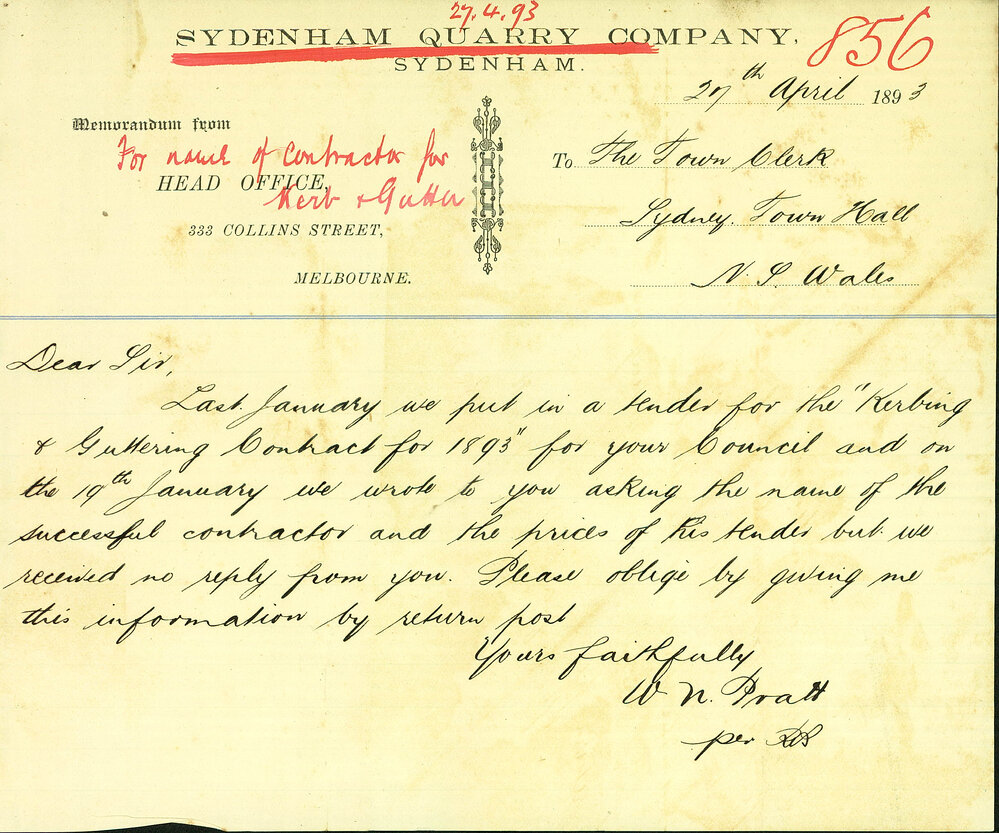 27.4.93
SYDENHAM QUARRY COMPANY,
SYDENHAM.
856
27th April 1893
Memorandum from
For name of Contractor for
HEAD OFFICE,
Kerb & Gutter
333 COLLINS STREET,
MELBOURNE.
To The Town Clerk
Sydney. Town Hall
N. S. Wales
Dear Sir,
Last January we put in a tender for the "Kerbing
& Guttering Contract for 1893" for your Council and on
the 19th January we wrote to you asking the name of the
successful contractor and the prices of his tender but we
received no reply from you. Please oblige by giving me
this information by return post
Yours faithfully
W. N. Pratt
per